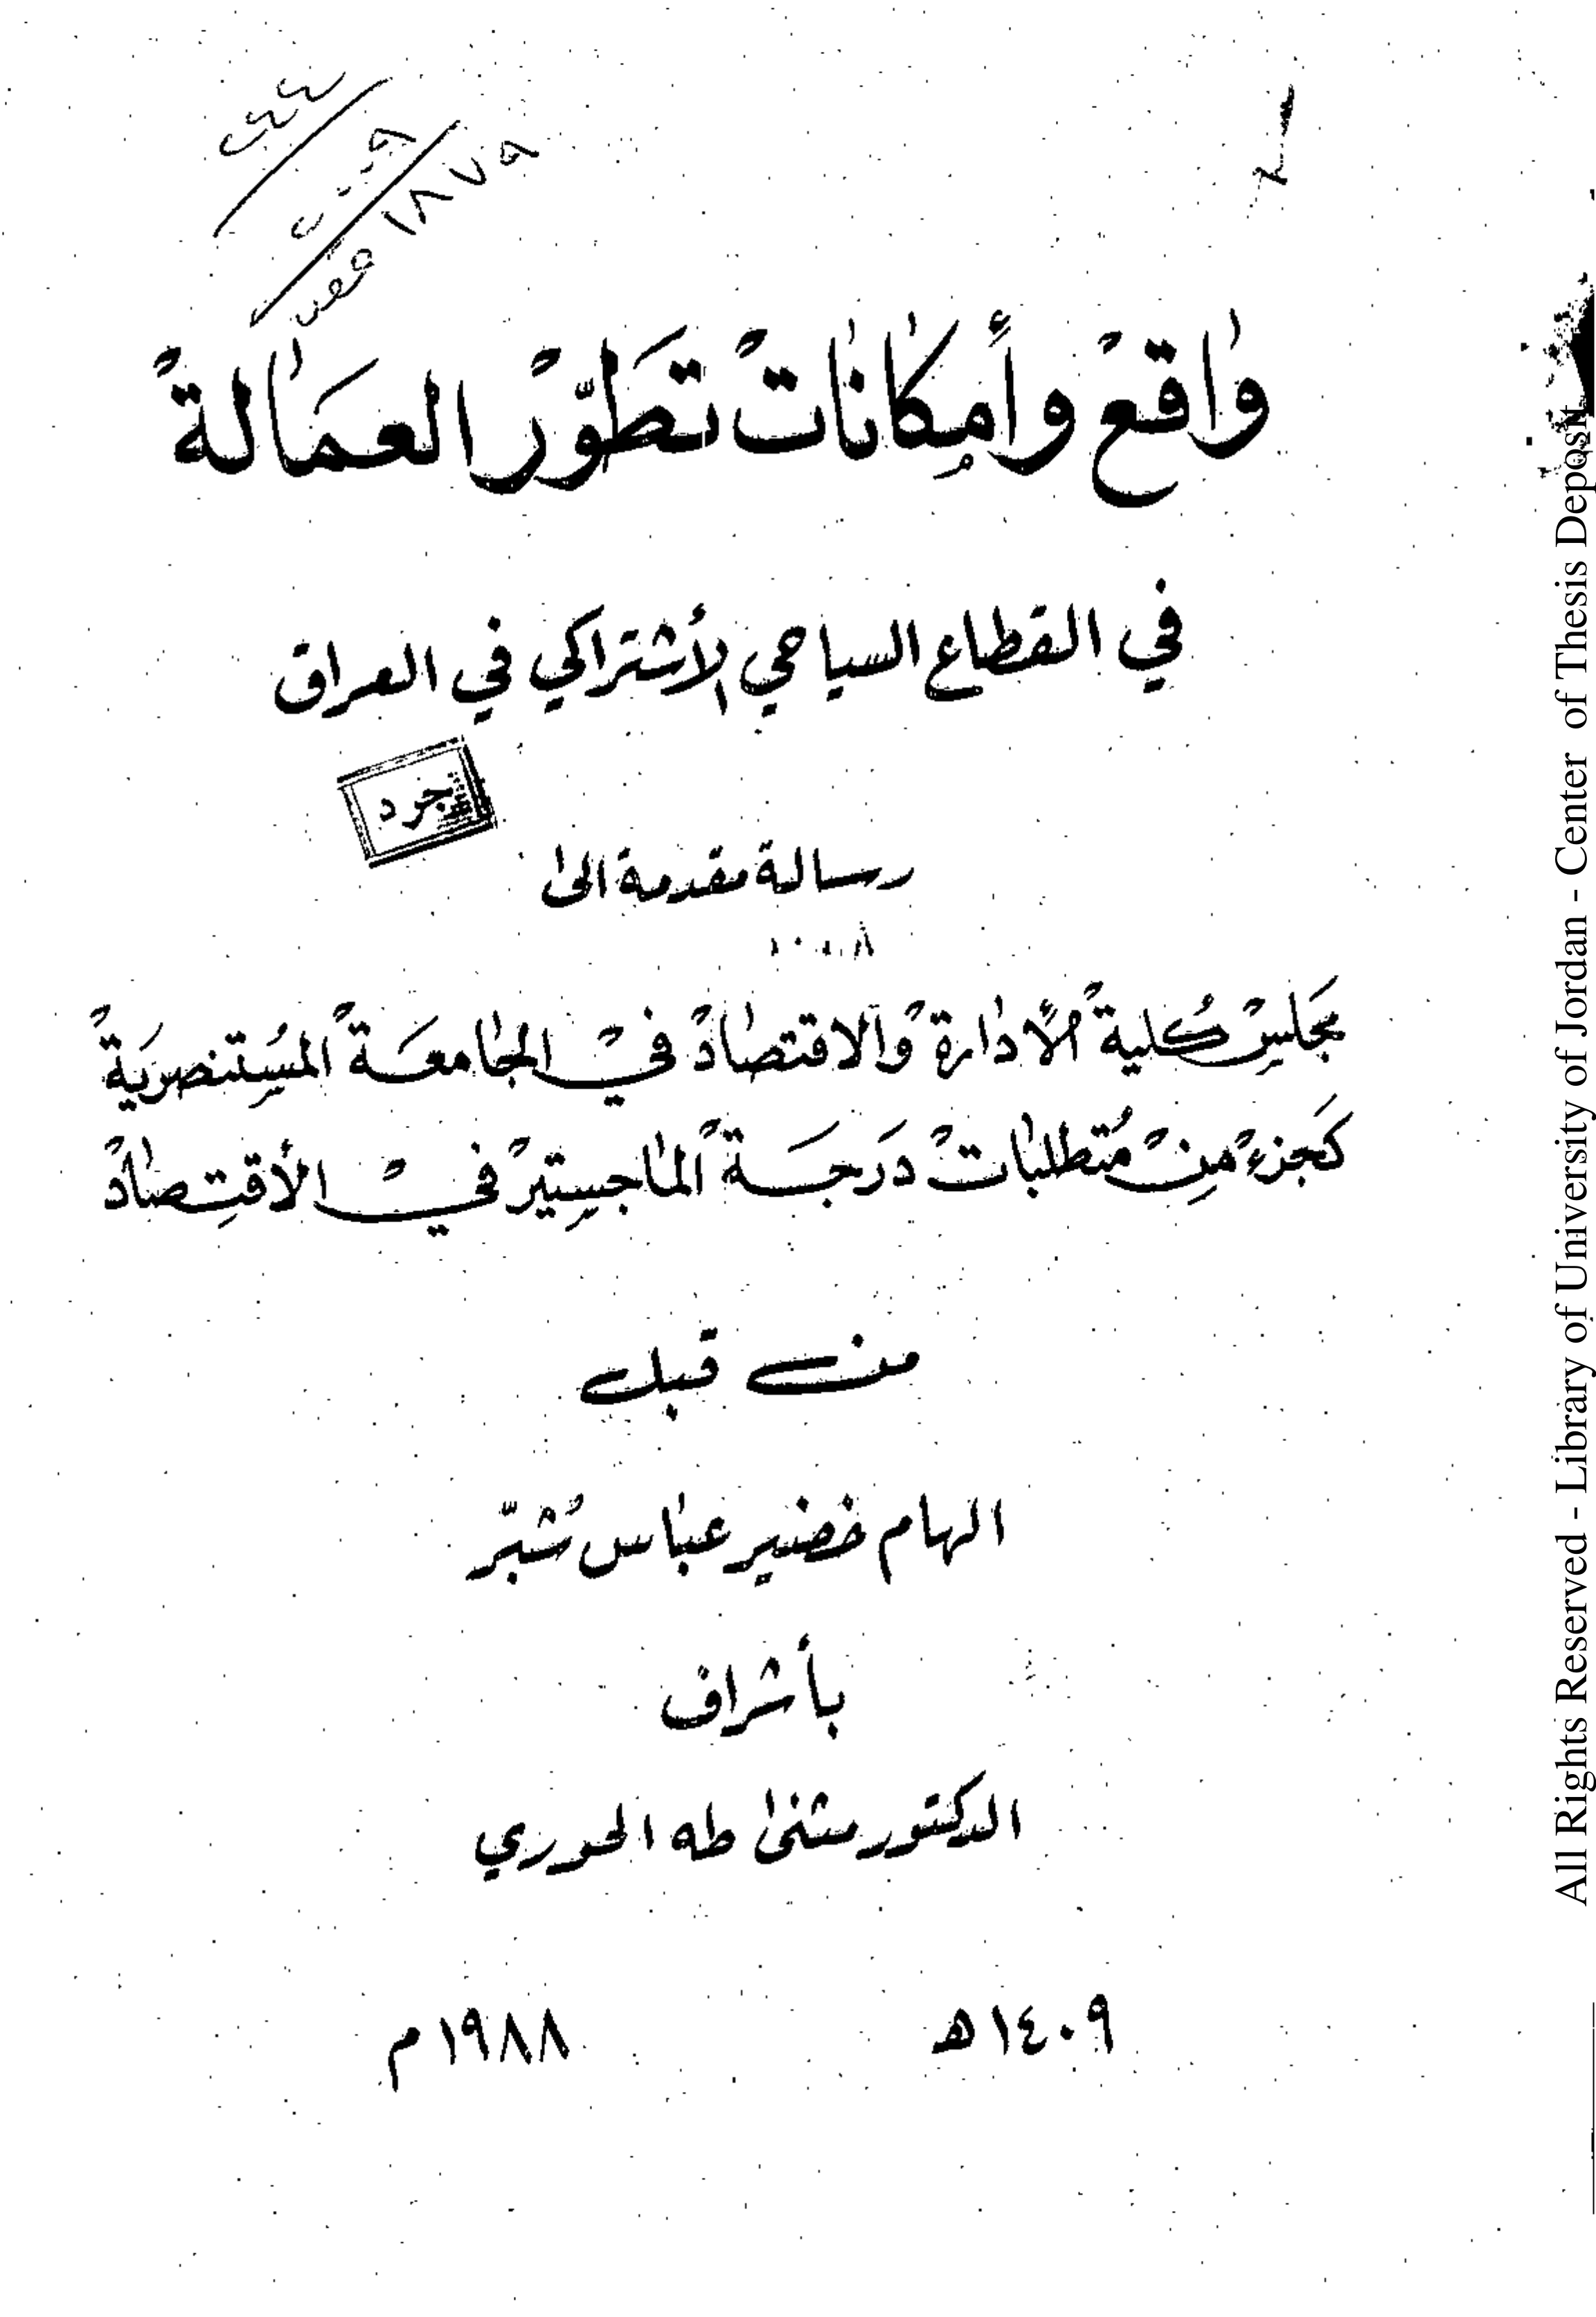 ١٨٧٩
واقع وأمكانات تطوّر العمالة
في القطاع السياحي الأشتراكي في العراق
جرد
رسالة مقدمة الى
مجلس كلية الادارة والاقتصاد في الجامعة المستنصرية
كجزء من متطلبات درجة الماجستير في الأقتصاد
من قبل
الهام خضير عباس شُبّر
بأشراف
الدكتور مثنى طه الحوري
١٤٠٩ هـ ١٩٨٨ م
All Rights Reserved - Library of University of Jordan - Center of Thesis Deposit